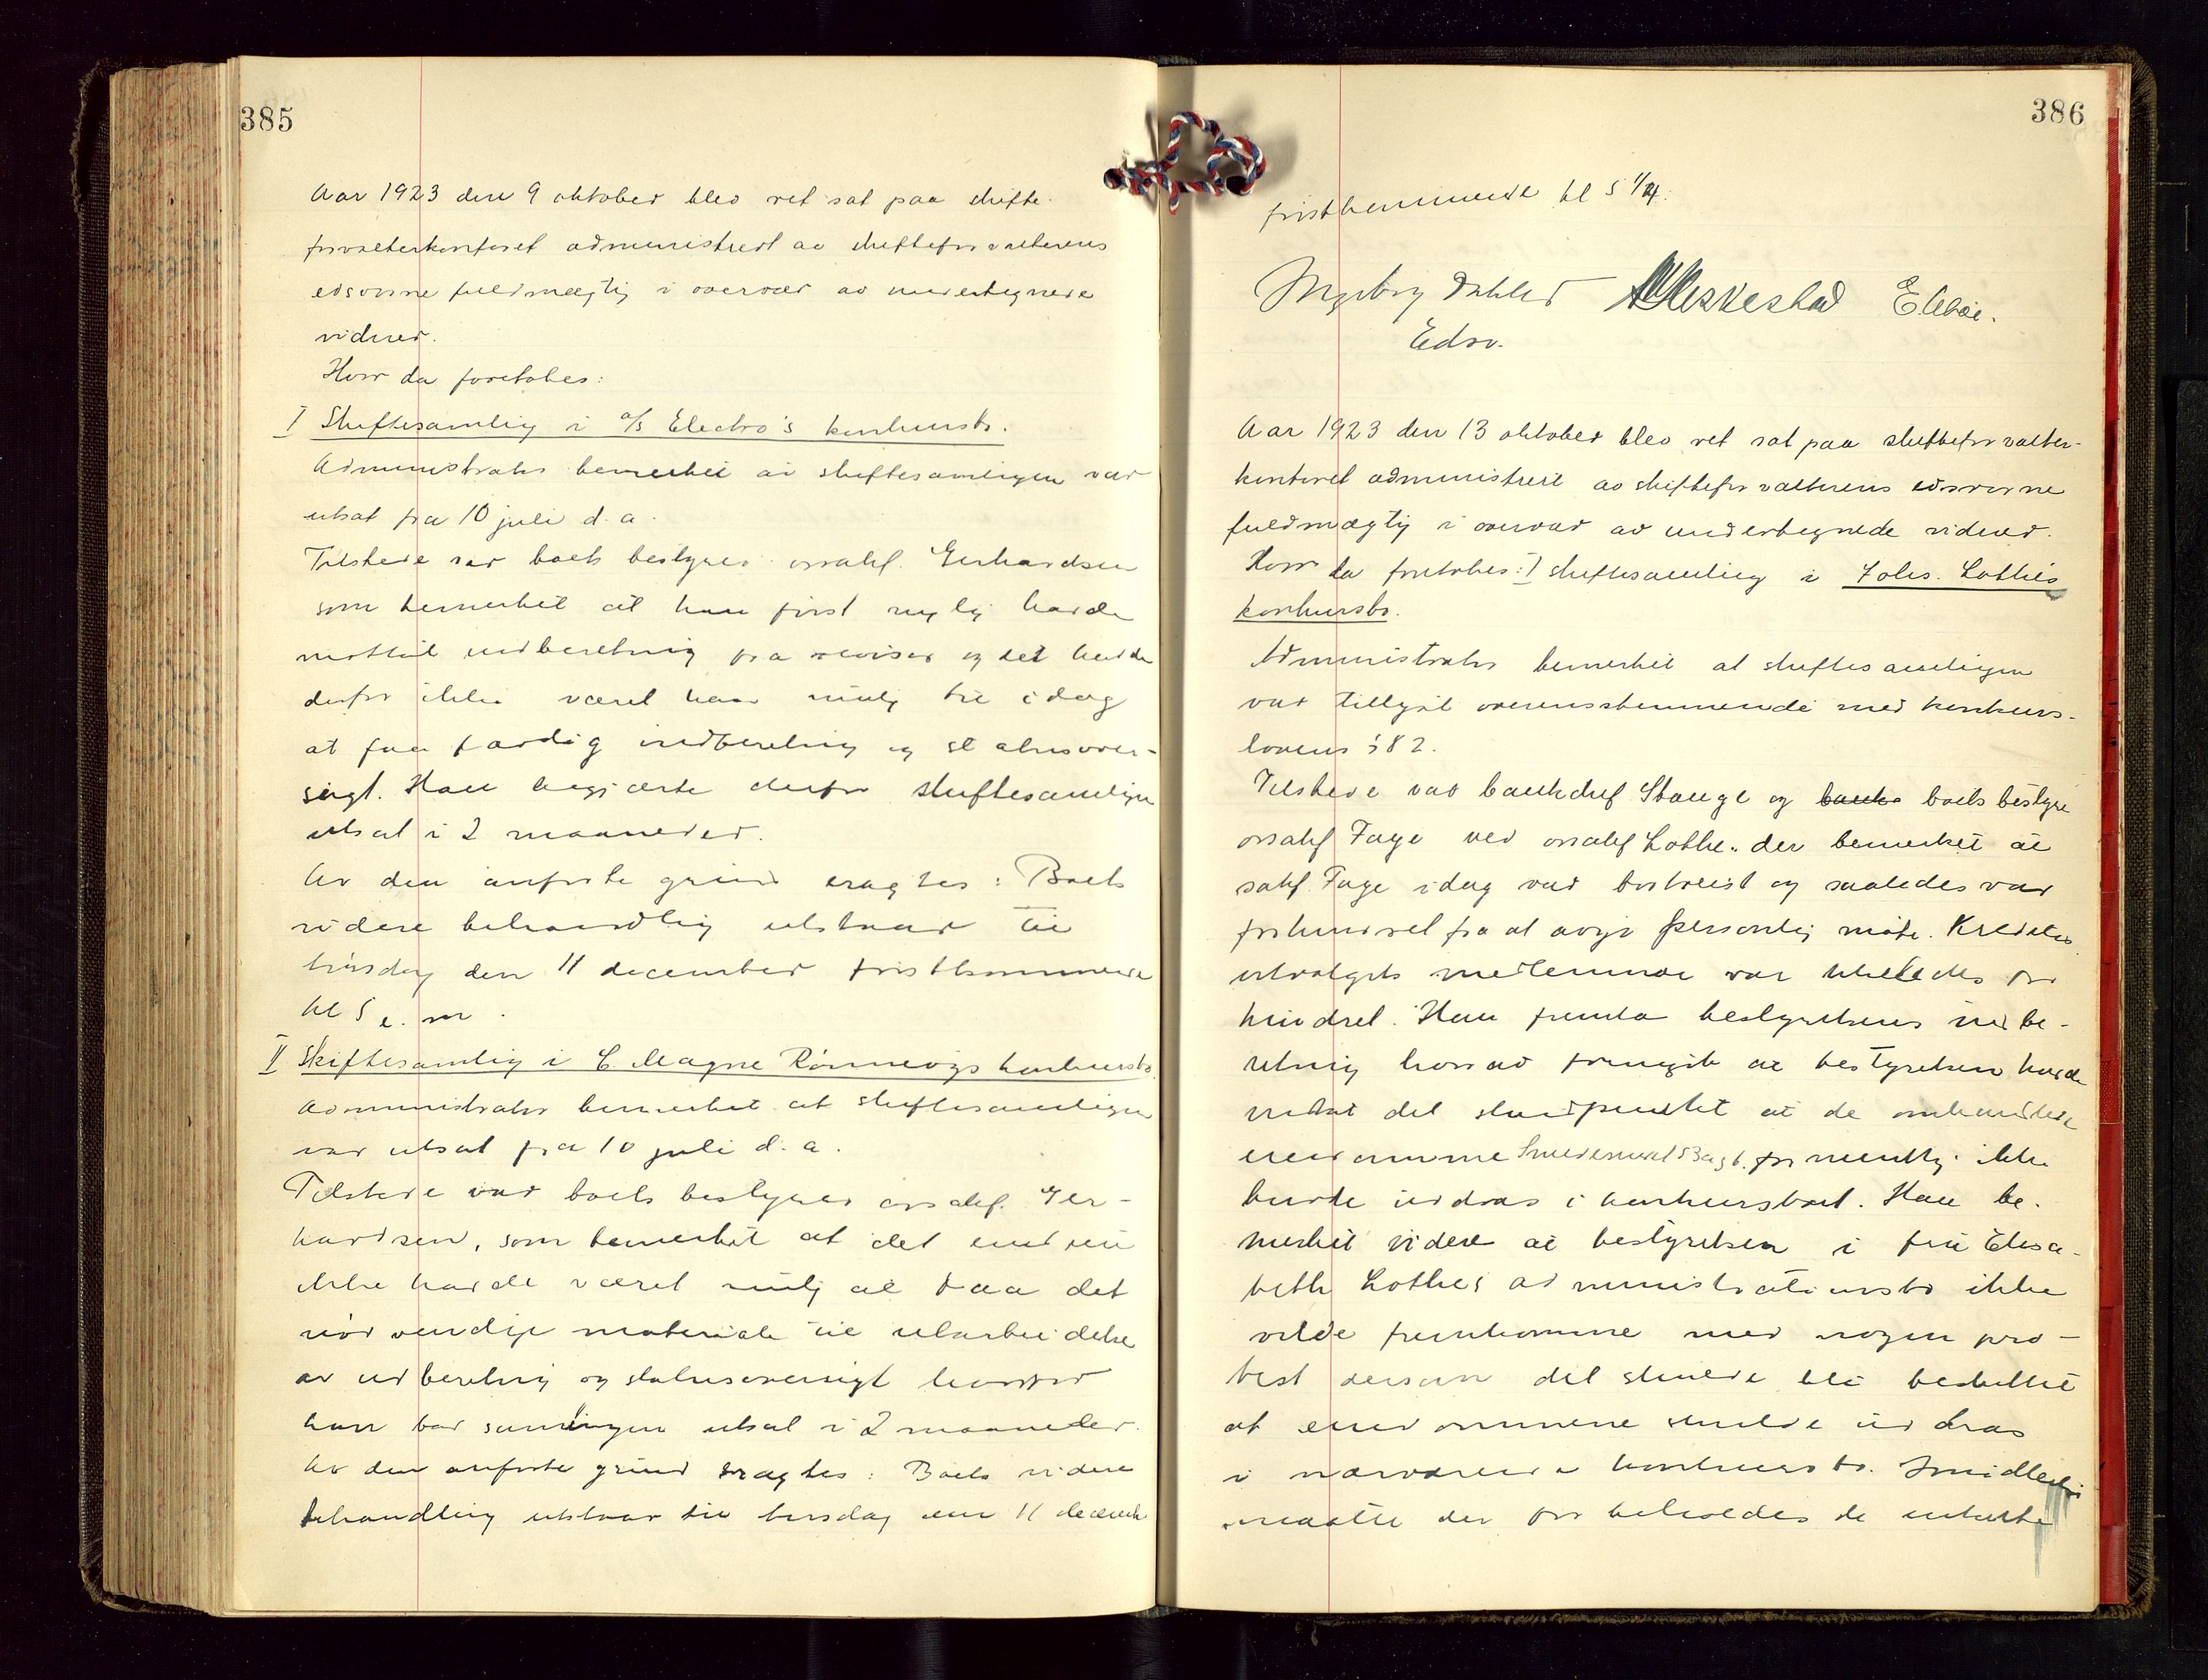 385
Aar 1923 den 9 oktober blev ret sat paa skifte-
forvalterkontoret administrert av skifteforvalterens
edsvorne fuldmægtig i overvær av undertegnede
vidner.
Hvor da foretokes:
I Skiftesamling i a/s Electro's konkursbo.
Administrator bemerket at skiftesamlingen var
utsat fra 10 juli d. a.
Tilstede var boets bestyrer orsakf. Gerhardsen
som bemerket at han først nylig hadde
mottat indberetning fra revisor og det hadde
derfor ikke været ham mulig til idag
at faa færdig indberetning og statusover-
sigt. Han begjærte derfor skiftesamlingen
utsat i 2 maaneder.
Av den anførte grund eragtes: Boets
videre behandling utstaar til
tirsdag den 11 december førstkommende
kl 5 e. m.
II Skiftesamling i C. Magne Rønnevigs konkursbo.
Administrator bemerket at skiftesamlingen
var utsat fra 10 juli d. a.
Tilstede var boets bestyrer orsakf. Ger-
hardsen, som bemerket at det endnu
ikke hadde været mulig at faa det
nødvendige materiale til utarbeidelse
av indberetning og statusoversigt hvorfor
han bad samlingen utsat i 2 maaneder.
Av den anførte grund eragtes: Boets videre
behandling utstaar til tirsdag den 11 decemb
386
førstkommende kl 5 1/4.
Ingeborg Dahler Meskestad
Edsv.
Aar 1923 den 13 oktober blev ret sat paa skifteforvalter-
kontoret administrert av skifteforvalterens edsvorne
fuldmægtig i overvær av undertegnede vidner.
Hvor da foretokes: I skiftesamling i Johs. Lothes
konkursbo.
Administrator bemerket at skiftesamlingen
var tillyst overensstemmende med konkurs-
lovens § 82.
Tilstede var bankchef Stange og banke boets bestyre
orsakf Fage ved orsakf Lothe. der bemerket at
sakf. Fage idag var bortreist og saaledes var
forhindret fra at avgi personlig møte. Kreditor
utvalgets medlemmer var likeledes for
hindret. Han fremla bestyrelsens indbe-
retning hvorav fremgik at bestyrelsen havde
indtat det standpunktet at de omhandlede
eiendomme Smedesundet 53 ag b. formentlig ikke
burde inddras i konkursboet. Han be-
merket videre at bestyrelsen i fru Elisa-
beth Lothes administrationsbo ikke
vilde fremkomme med nogen pro-
test dersom det skulde bli besluttet
at eiendommene skulde inddras
i nærværende konkursbo. Imidlertid
maatte der forbeholdes de